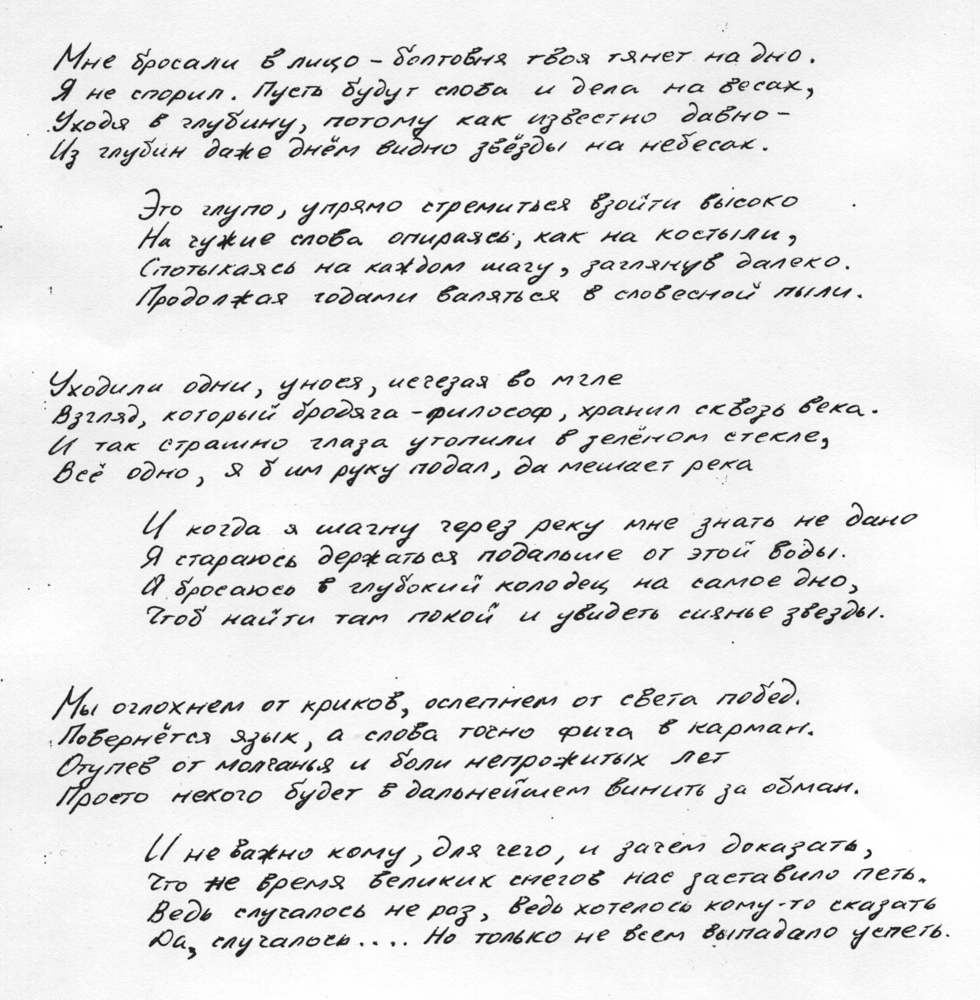 Мне бросали в лицо – болтовня твоя тянет на дно.
Я не спорил. Пусть будут слова и дела на весах,
Уходя в глубину, потому как известно давно –
Из глубин даже днём видно звёзды на небесах.
Это глупо, упрямо стремиться взойти высоко
На чужие слова опираясь, как на костыли,
Спотыкаясь на каждом шагу, заглянув далеко.
Продолжая годами валяться в словесной пыли.
Уходили одни, унося, исчезая во мгле
Взгляд, который бродяга – философ, хранил сквозь века.
И так страшно глаза утопили в зелёном стекле,
Всё одно, я б им руку подал, да мешает река
И когда я шагну через реку мне знать не дано
Я стараюсь держаться подальше от этой воды.
Я бросаюсь в глубокий колодец на самое дно,
Чтоб найти там покой и увидеть сиянье звезды.
Мы оглохнем от криков, ослепнем от света побед.
Повернётся язык, а слова точно фига в карман.
Отупев от молчанья и боли непрожитых лет
Просто некого будет в дальнейшем винить за обман.
И не важно кому, для чего, и зачем доказать,
Что не время великих снегов нас заставило петь.
Ведь случалось не раз, ведь хотелось кому-то сказать
Да, случалось.... Но только не всем выпадало успеть.